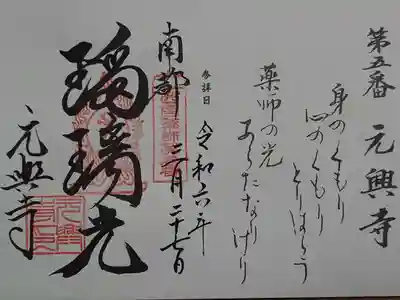 第五番 元興寺
身のくもり
心のくもり
とりはらう
薬師の光
あらたなりけり
参拝日 令和六年
三月二十七日
南都
瑠璃光
元興寺